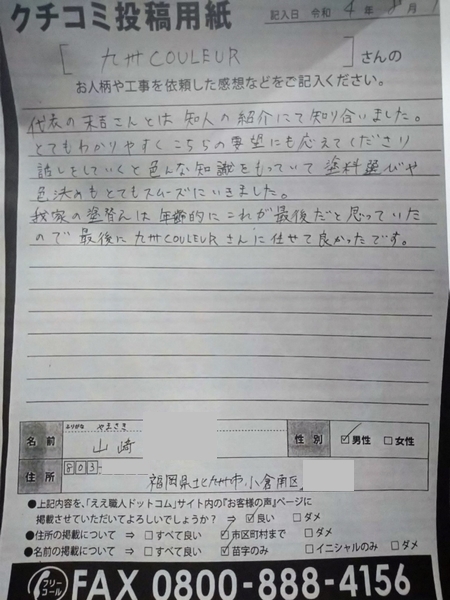 クチコミ投稿用紙
記入日 令和 4 年 月
[ 九州COULEUR ]さんの
お人柄や工事を依頼した感想などをご記入ください。
代表の末吉さんとは知人の紹介にて知り合いました。
とてもわかりやすくこちらの要望にも応えてくださり
話しをしていくと色んな知識をもっていて塗料選びや
色決めもとてもスムーズにいきました。
我家の塗替えは年齢的にこれが最後だと思っていた
ので最後に九州COULEURさんに任せて良かったです。
ふりがな やまさき
名前 山崎 性別 ☑男性 □女性
住所 803-
福岡県北九州市小倉南区
●上記内容を、「ええ職人ドットコム」サイト内の『お客様の声』ページに
掲載させていただいてよろしいでしょうか? ⇒ ☑良い □ダメ
●住所の掲載について ⇒ □すべて良い ☑市区町村まで □ダメ
●名前の掲載について ⇒ □すべて良い ☑苗字のみ □イニシャルのみ □ダメ
フリーコール FAX 0800-888-4156